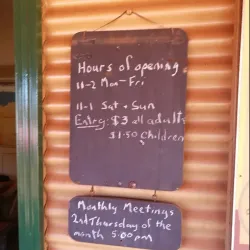 Hours of opening
11-2 Mon-Fri
11-1 Sat + Sun
Entry: $3 all adults
$1.50 children
Monthly Meetings
2nd Thursday of the
month 5:00pm